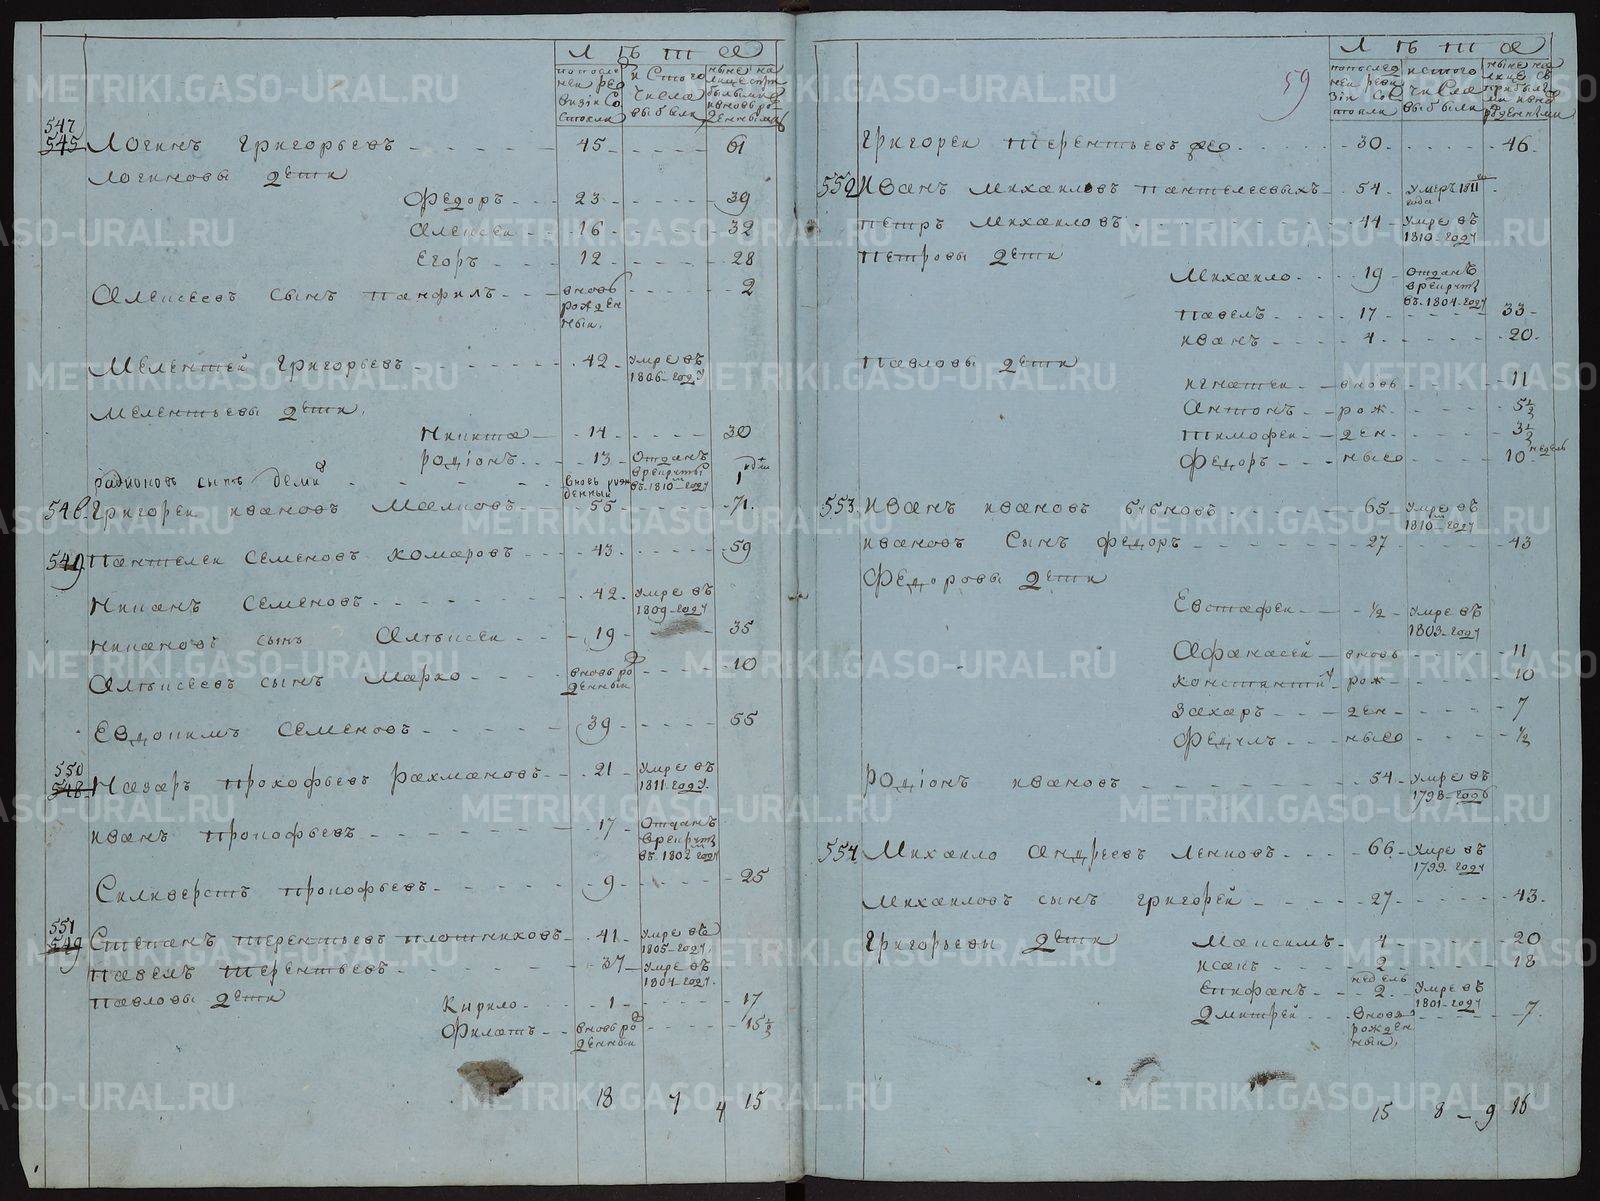 Л ѣ т а
по послѣдней ревизіи состояли
изъ того числа выбыли
ныне на лицо с прибылыми и вновь рожденными
547
545 Логинъ Григорьевъ 45 61
Логиновы дети
Федоръ 23 39
Алексеи 16 32
Егоръ 12 28
Алексеевъ сынъ Панфилъ вновь рожденныи. 2
Мелентей Григорьевъ 42 умре въ 1806 году
Мелентьевы дети.
Никита 14 30
Родіонъ 13 Отданъ в рекруты въ 1810м году
Радионовъ сынъ Демид вновь рожденныи 1
548 Григореи Ивановъ Малковъ 55 71.
549 Пантелеи Семеновъ Комаровъ 43 59
Никанъ Семеновъ 42 умре въ 1809 году
Никановъ сынъ Алѣксеи 19 35
Алѣксеевъ сынъ Марко вновь рожденныи 10
Евдокимъ Семеновъ 39 55
550
548 Назаръ Прокофьевъ Рахмановъ 21 умре въ 1811 году.
Иванъ Прокофьевъ 17 Отданъ в рекруты въ 1802м году
Силиверстъ Прокофьевъ 9 25
551
549 Степанъ Терентьевъ Плотниковъ 41 умре въ 1805 году.
Павелъ Терентьевъ 37 умре въ 1804 году.
Павловы дети
Кирило 1 17
Филатъ вновь рожденныи 15 1/2
18 7 4 15
59
Л ѣ т а
по последней ревизіи состояли
ис того числа выбыли
ныне на лице с прибылыми и вновь рожденными
Григореи Терентьевъ 30 46
552 Иванъ Михаиловъ Пантелеевыхъ 54 умръ 1811го года
Петръ Михаиловъ 44 умре въ 1810 году
Петровы дети
Михаило 19 Отданъ в рекруты въ 1804 году
Павелъ 17 33
Иванъ 4 20
Павловы дети
Игнатеи вновь 11
Антонъ рож 5 1/2
Тимофеи ден 3 1/2
Федоръ ныео 10 недель
553 Иванъ Ивановъ Бубновъ 65 умре въ 1810м году
Ивановъ сынъ Федоръ 27 43
Федоровы дети
Евстафеи 1/2 умре въ 1803 году
Афанасей вновь 11
Константин рож 10
Захаръ ден 7
Федулъ ныео 1/2
Родіонъ Ивановъ 54 умре въ 1798 годе
554 Михаило Андреевъ Ленковъ 66 умре въ 1799 году
Михаиловъ сынъ Григорей 27 43.
Григорьевы дети Максимъ 4 20
Исакъ 2 18
Епифанъ недель 2 умре въ 1801 году
Дмитрей вновь рожденныи, 7
15 8 9 16